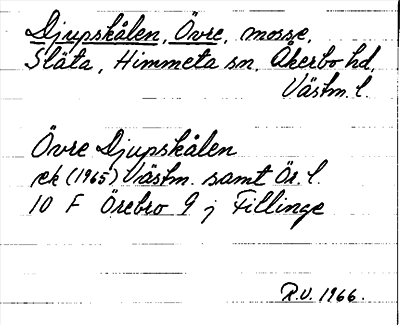 Djupskålen, Övre, mosse,
Släta, Himmeta sn, Åkerbo hd,
Västm. l.
Övre Djupskålen
ek (1965) Västm. samt Ör. l.
10 F Örebro 9 j Fillinge
R.U. 1966.